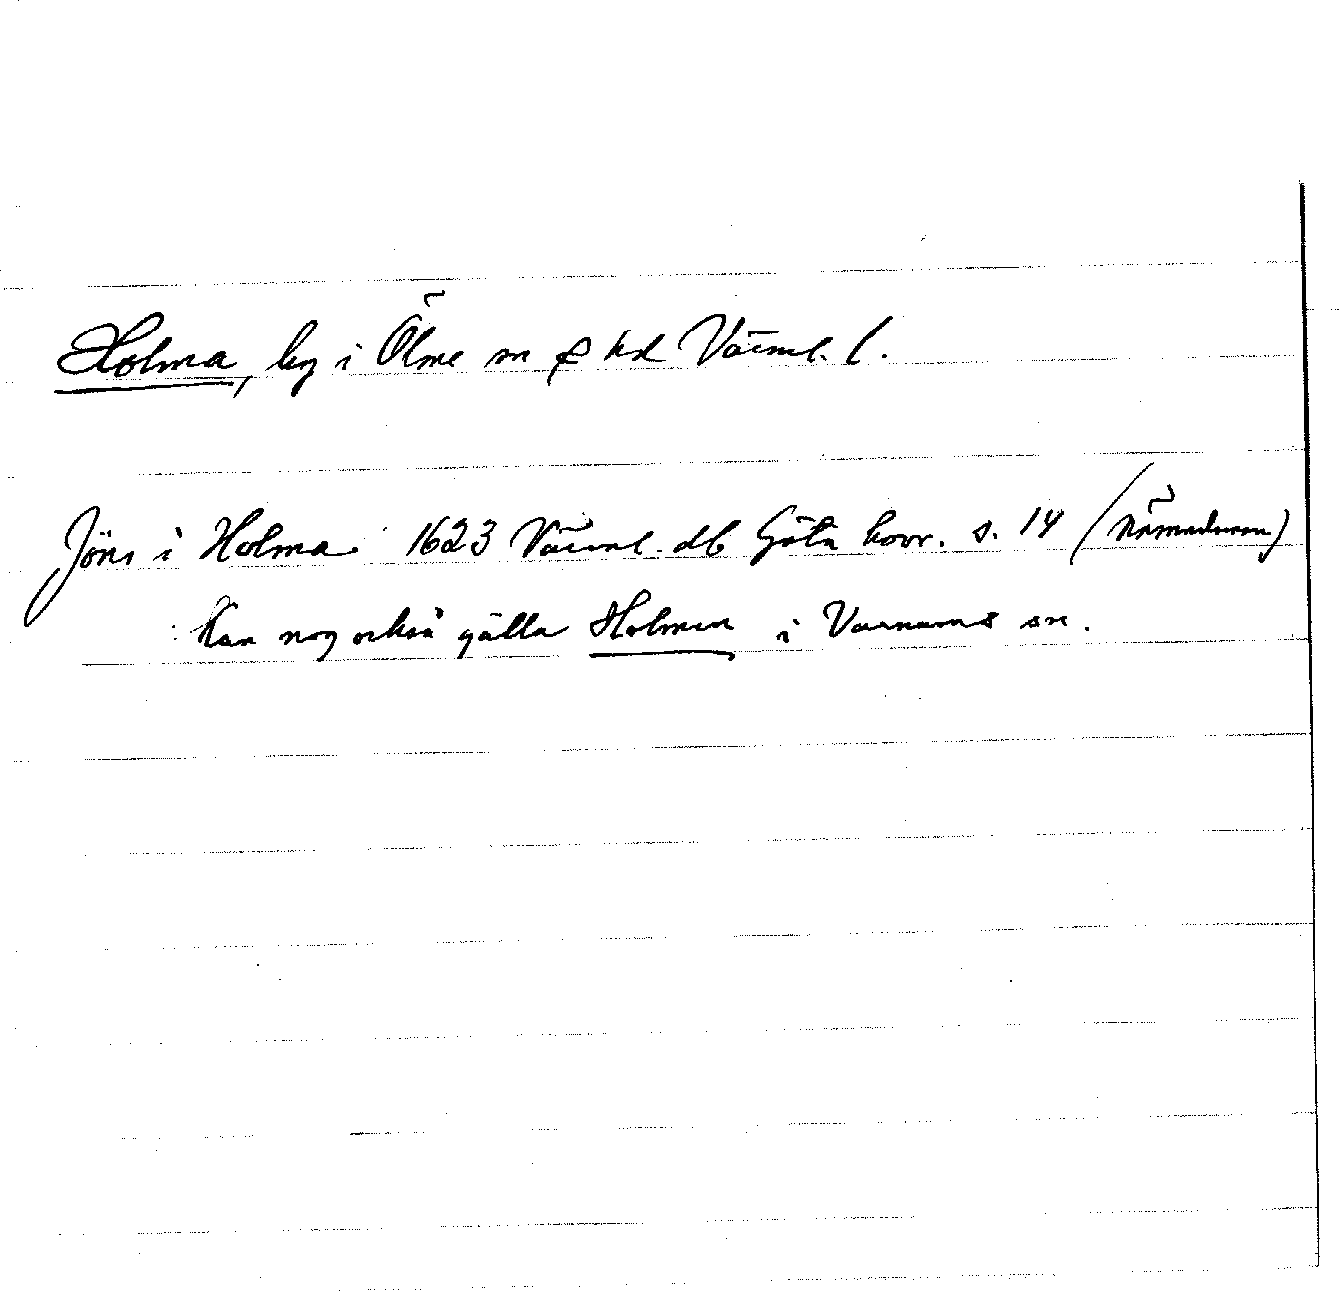 Holma, by i Ölme sn & hd Värml. l.
Jöns i Holma 1623 Värml. db Göta hovr. s. 14 (Nämndeman)
Kan nog också gälla Holmen i Varnums sn.